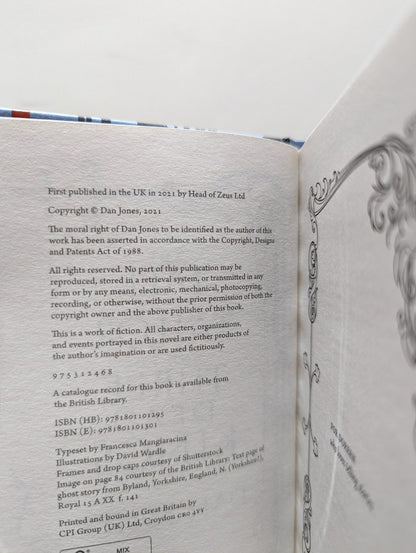 First published in the UK in 2021 by Head of Zeus Ltd
Copyright © Dan Jones, 2021
The moral right of Dan Jones to be identified as the author of this
work has been asserted in accordance with the Copyright, Designs
and Patents Act of 1988.
All rights reserved. No part of this publication may be
reproduced, stored in a retrieval system, or transmitted in any
form or by any means, electronic, mechanical, photocopying,
recording, or otherwise, without the prior permission of both the
copyright owner and the above publisher of this book.
This is a work of fiction. All characters, organizations,
and events portrayed in this novel are either products of
the author's imagination or are used fictitiously.
9 7 5 3 1 2 4 6 8
A catalogue record for this book is available from
the British Library.
ISBN (HB): 9781801101295
ISBN (E): 9781801101301
Typeset by Francesca Mangiaracina
Illustrations by David Wardle
Frames and drop caps courtesy of Shutterstock
Image on page 84 courtesy of the British Library: Text page of
ghost story from Byland, Yorkshire, England, N. (Yorkshire?),
Royal 15 A XX f. 141
Printed and bound in Great Britain by
CPI Group (UK) Ltd, Croydon CR0 4YY
MIX